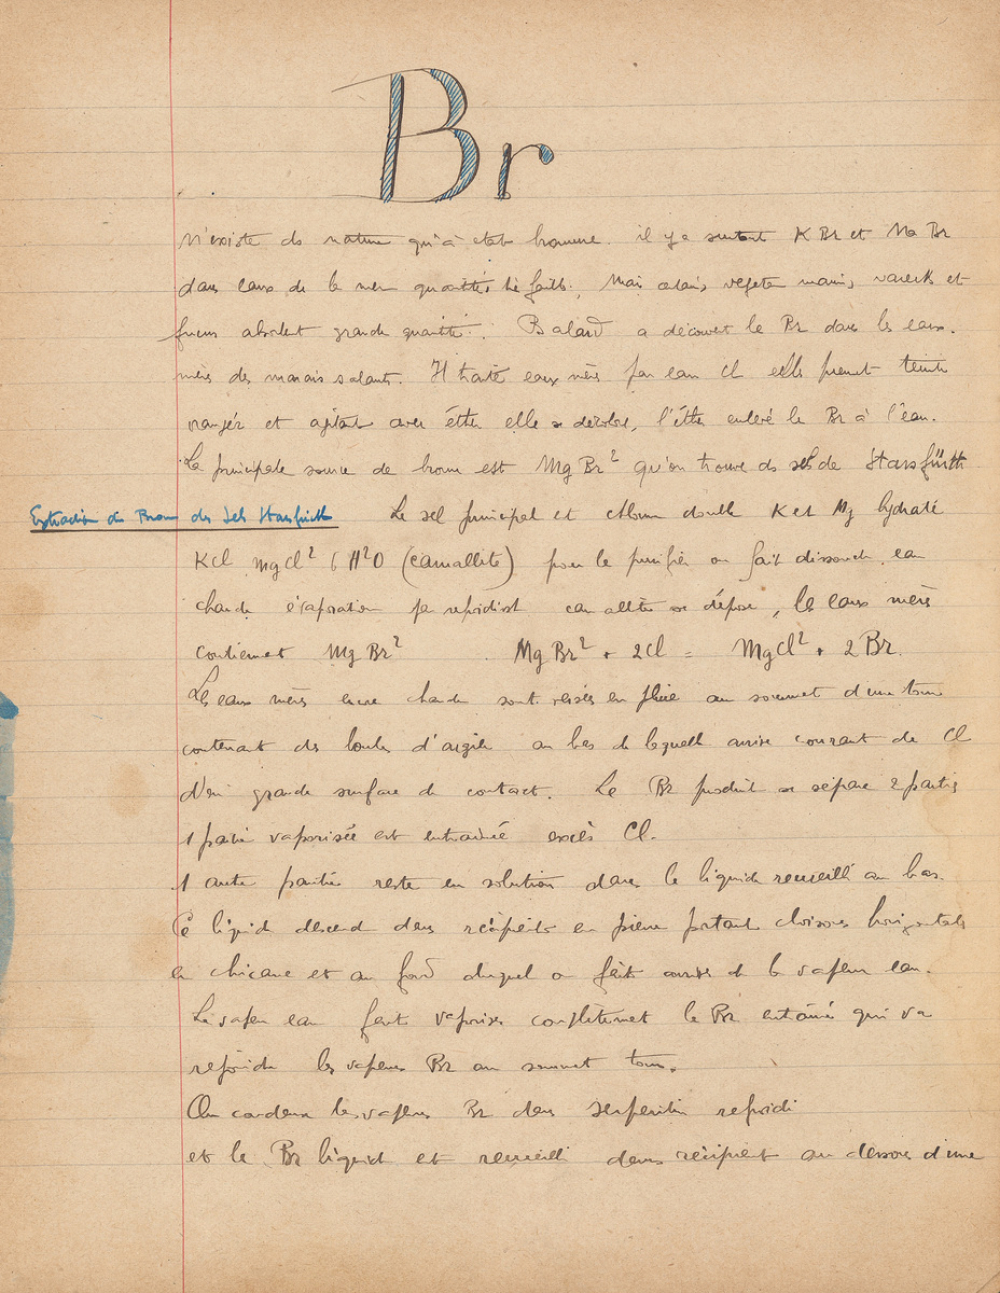 Br
n'existe ds nature qu'à état bromure. il y a surtout K Br et Na Br
dans eaux de la mer quantités très faibles, Mais algues, végétaux marins, varecks et
fucus absorbent grande quantité. Balard a découvert le Br dans les eaux-
mères des marais salants. Il traite eaux mères par eau Cl elles prennent teinte
orangée et agitant avec éther elle se décolore, l'éther enlève le Br à l'eau.
La principale source de brome est MgBr² qu'on trouve ds sels de Stassfürth
Extraction du Brome des Sels Stassfürth Le sel principal est chlorure double K et Mg hydraté
KCl MgCl² 6 H²O (carnallite) pour le purifier on fait dissoudre eau
chaude évaporation par refroidist carnallite se dépose, les eaux mères
contiennent MgBr² MgBr² + 2Cl = MgCl² + 2Br.
Les eaux mères encore chaudes sont versées en pluie au sommet d'une tour
contenant des boules d'argile au bas de laquelle arrive courant de Cl
D'où grande surface de contact. Le Br produit se sépare 2 parties
1 partie vaporisée est entrainée excès Cl.
1 autre partie reste en solution dans le liquide recueilli au bas.
Ce liquide descend dans récipients en pierre portant cloisons horizontales
en chicane et au fond duquel on fait arriver de la vapeur eau.
La vapeur eau fait vaporiser complètement le Br entrainé qui va
rejoindre les vapeurs Br au sommet tour.
On condense les vapeurs Br dans serpentin refroidi
et le Br liquide est recueilli dans récipient au dessous d'une